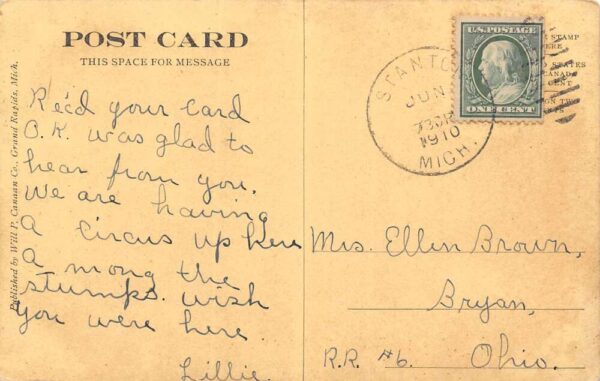 POST CARD
THIS SPACE FOR MESSAGE
Rec'd your card
O.K. was glad to
hear from you.
We are having
a circus up here
a mong the
stumps. wish
you were here.
Lillie.
Published by Will P. Canaan Co., Grand Rapids, Mich.
STANTO
JUN
1910
MICH.
U.S. POSTAGE
ONE CENT
STAMP
ERE
STATES
CANADA
CENT
Mrs. Ellen Brown,
Bryan,
R.R. #6. Ohio.